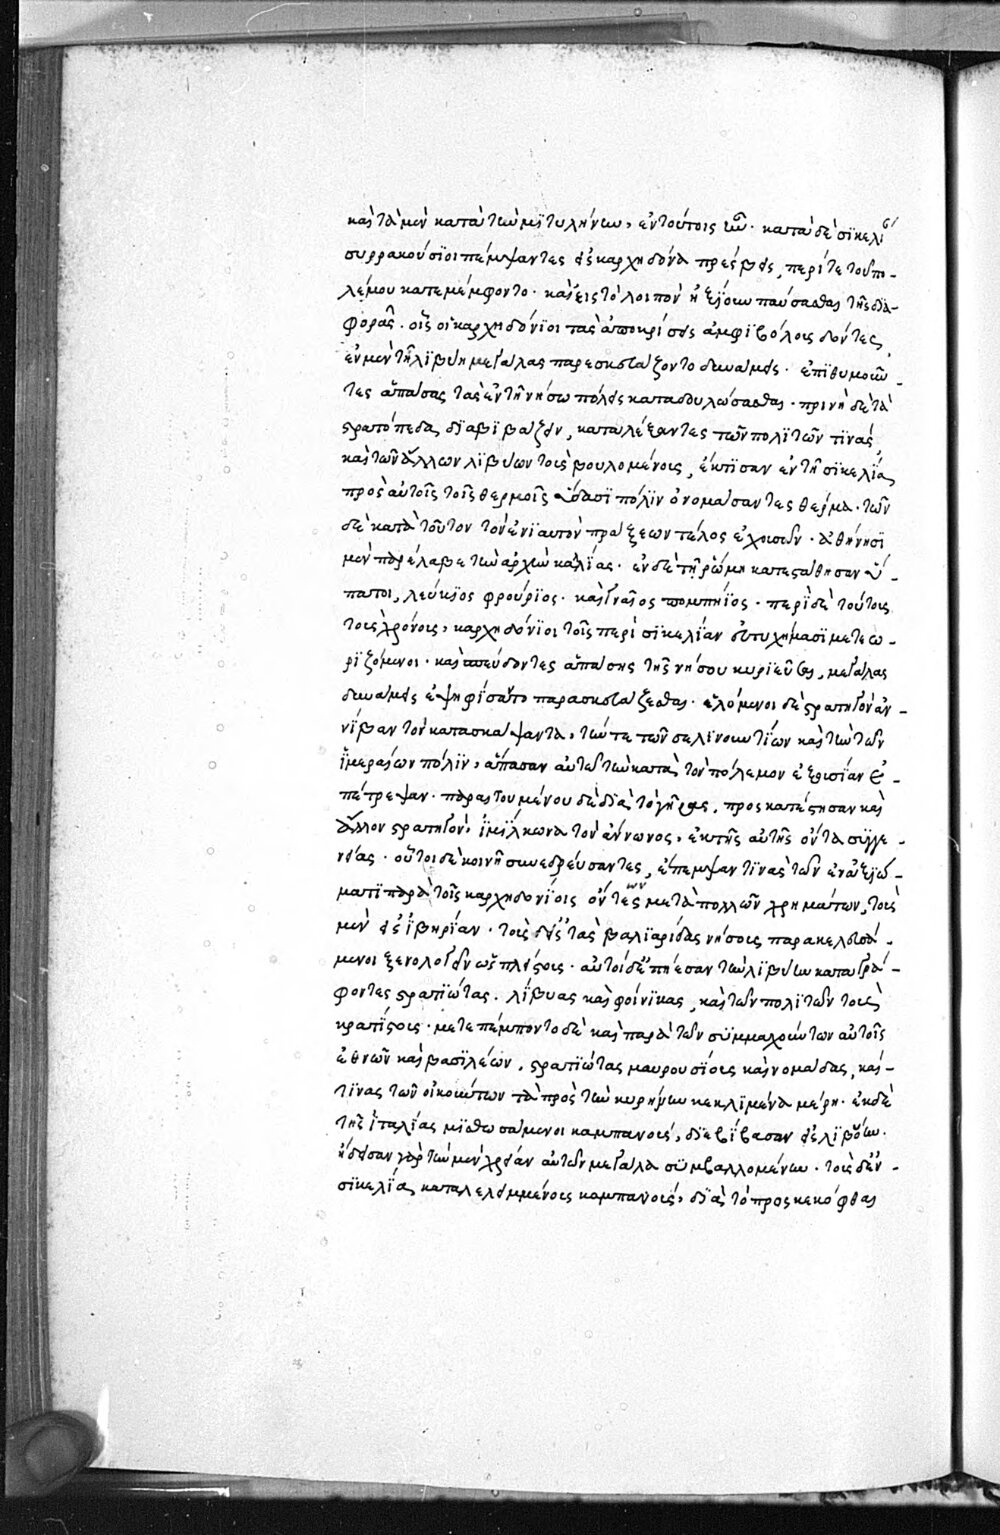 καὶ τὰ μὲν κατὰ τὴν μϊτυλήνην, ἐν τούτοις ἦν. κατὰ δὲ σϊκελί
συρρακούσϊοι πέμψαντες εἰς καρχηδόνα πρέσβεις, περί τε τοῦ πο-
λέμου κατεμέμφοντο. καὶ εἰς τὸ λοιπὸν ἠξΐουν παύσασθαι τῆς δϊα-
φορᾶς. οἷς οἱ καρχηδόνϊοι τὰς ἀποκρίσεις ἀμφϊβόλους δόντες,
ἐν μὲν τῆ λϊβύη μεγάλας παρεσκευάζοντο δυνάμεις. ἐπϊθυμοῦν-
τες ἁπάσας τὰς ἐν τῆ νήσω πόλεις καταδουλώσασθαι. πρινὴ δὲ τὰ
στρατόπεδα δϊαβϊβάζειν, καταλέξαντες τῶν πολϊτῶν τϊνάς,
καὶ τῶν ἄλλων λϊβύων τοὺς βουλομένους, ἔκτϊσαν ἐν τῆ σϊκελΐα,
πρὸς αὐτοῖς τοῖς θερμοῖς ὕδασϊ πόλϊν ὀνομάσαντες θέρμα. τῶν
δὲ κατὰ τοῦτον τὸν ἐνϊαυτὸν πράξεων τέλος ἐχουσῶν. ἀθήνησϊ
μὲν παρέλαβε τὴν ἀρχὴν καλίας. ἐν δὲ τῆ ῥώμη κατεστάθησαν ὕ-
πατοι, λεύκϊος φρούρϊος. καὶ γνάϊος πομπήϊος. περὶ δὲ τούτους
τοὺς χρόνους, καρχηδόνϊοι τοῖς περὶ σϊκελΐαν εὐτυχήμασϊ μετεω-
ρϊζόμενοι. καὶ σπεύδοντες ἁπάσης τῆς νήσου κυρϊεῦσαι, μεγάλας
δυνάμεις ἐψηφΐσαντο παρασκευάζεσθαι. ἑλόμενοι δὲ στρατηγὸν ἀν-
νΐβαν τὸν κατασκάψαντα, τήν τε τῶν σελϊνουντΐων καὶ τὴν τῶν
ἱμεραίων πόλϊν, ἅπασαν αὐτῶ τὴν κατὰ τὸν πόλεμον ἐξουσΐαν ἐ-
πέτρεψαν. παραιτουμένου δὲ δϊὰ τὸ γῆρας, προσκατέστησαν καὶ
ἄλλον στρατηγὸν, ἱμΐλκωνα τὸν ἄννωνος, ἐκ τῆς αὐτῆς ὄντα συγγε-
νείας. οὗτοι δὲ κοινῆ συνεδρεύσαντες, ἔπεμψαν τϊνὰς τῶν ἐν ἀξϊώ-
ματϊ παρὰ τοῖς καρχηδονΐοις ὄντες ων μετὰ πολλῶν χρημάτων, τοὺς
μὲν εἰς ἰβηρΐαν. τοὺς δ' εἰς τὰς βαλϊαρίδας νήσους παρακελευσά-
μενοι ξενολογεῖν ὡς πλείστους. αὐτοὶ δ' ἐπήεσαν τὴν λϊβύην καταγρά-
φοντες στρατϊώτας. λίβυας καὶ φοίνϊκας, καὶ τῶν πολϊτῶν τοὺς
κρατΐστους. μετεπέμποντο δὲ καὶ παρὰ τῶν συμμαχούντων αὐτοῖς
ἐθνῶν καὶ βασϊλέων, στρατϊώτας μαυρουσΐους καὶ νομάδας, καί
τϊνας τῶν οἰκούντων τὰ πρὸς τὴν κυρήνην κεκλϊμένα μέρη. ἐκ δὲ
τῆς ἰταλίας μϊσθωσάμενοι καμπανοὺς, δϊεβΐβασαν εἰς λϊβύην.
ἤδεισαν γὰρ τὴν μὲν χρείαν αὐτῶν μεγάλα συμβαλλομένην. τοὺς δ' ἐν
σϊκελΐα, καταλελειμμένους καμπανοὺς, δϊὰ τὸ προσκεκόφθαι